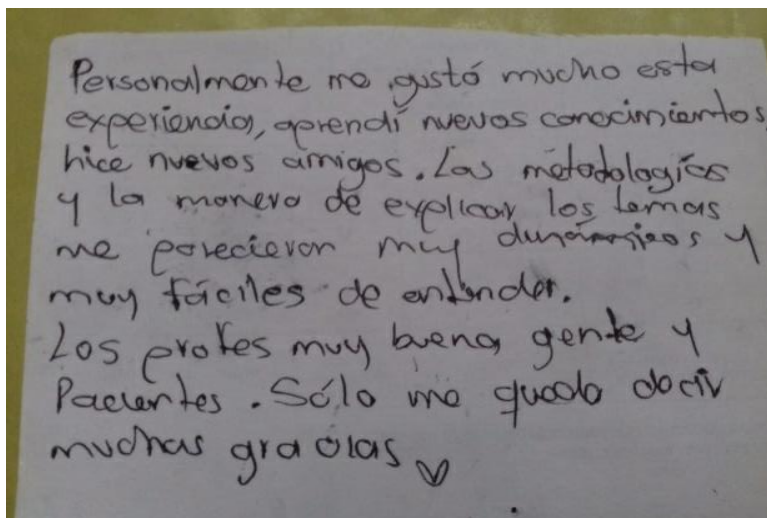 Personalmente me gustó mucho esta
experiencia, aprendí nuevos conocimientos,
hice nuevos amigos. Las metodologías
y la manera de explicar los temas
me parecieron muy dinámicos y
muy fáciles de entender.
Los profes muy buena gente y
Pacientes. Sólo me queda decir
muchas gracias ♡